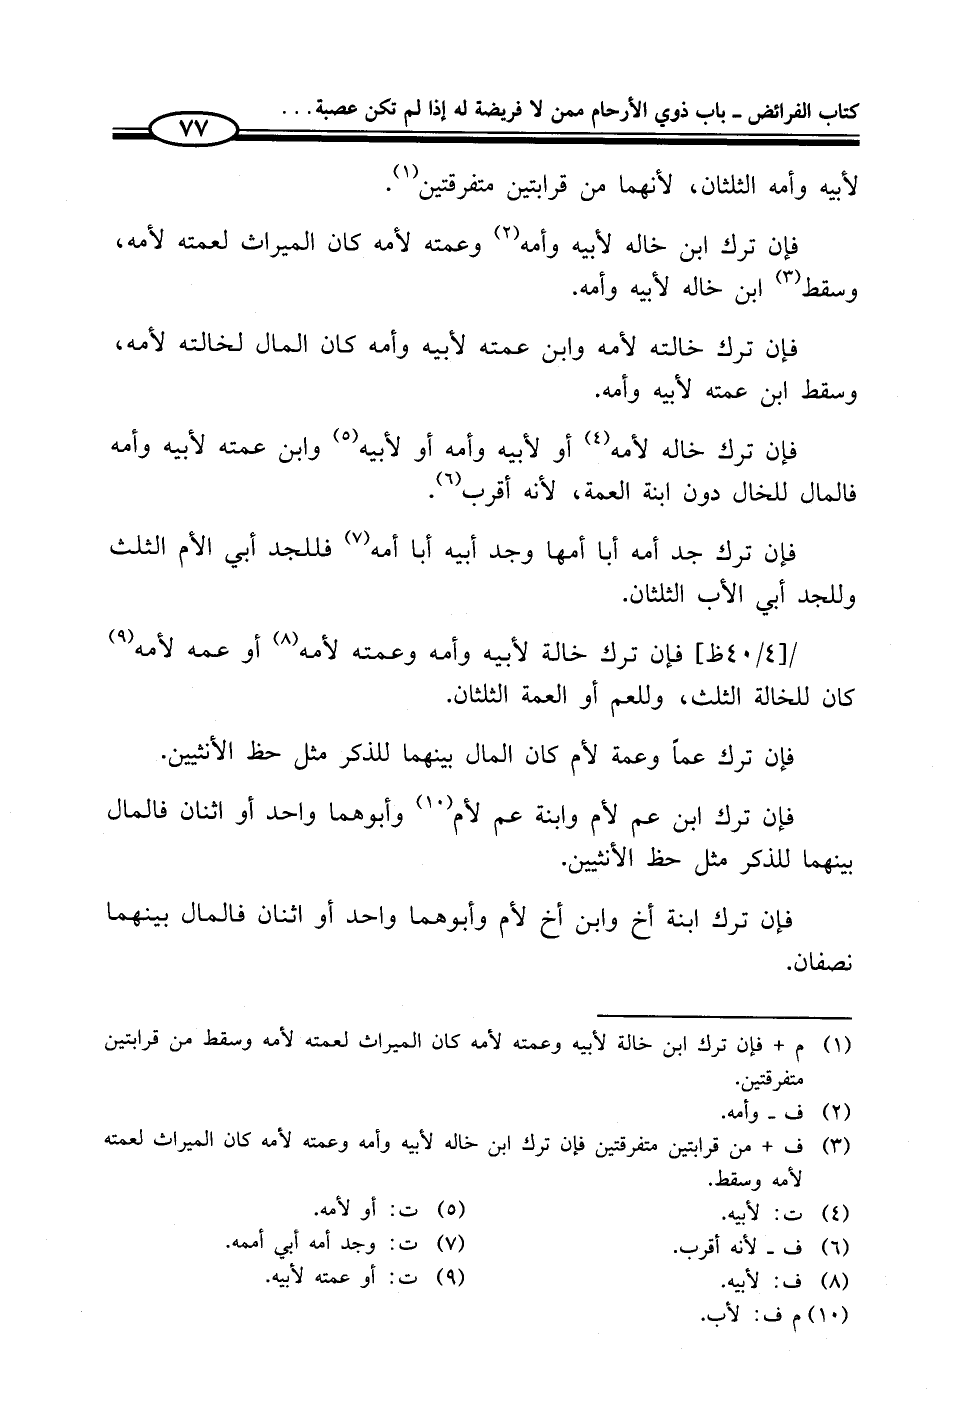 كتاب الفرائض ـ باب ذوي الأرحام ممن لا فريضة له إذا لم تكن عصبة . . .
٧٧
لأبيه وأمه الثلثان، لأنهما من قرابتين متفرقتين(١).
فإن ترك ابن خاله لأبيه وأمه(٢) وعمته لأمه كان الميراث لعمته لأمه،
وسقط(٣) ابن خاله لأبيه وأمه.
فإن ترك خالته لأمه وابن عمته لأبيه وأمه كان المال لخالته لأمه،
وسقط ابن عمته لأبيه وأمه.
فإن ترك خاله لأمه(٤) أو لأبيه وأمه أو لأبيه(٥) وابن عمته لأبيه وأمه
فالمال للخال دون ابنة العمة، لأنه أقرب(٦).
فإن ترك جد أمه أبا أمها وجد أبيه أبا أمه(٧) فللجد أبي الأم الثلث
وللجد أبي الأب الثلثان.
/[٤/٤٠ظ] فإن ترك خالة لأبيه وأمه وعمته لأمه(٨) أو عمه لأمه(٩)
كان للخالة الثلث، وللعم أو العمة الثلثان.
فإن ترك عماً وعمة لأم كان المال بينهما للذكر مثل حظ الأنثيين.
فإن ترك ابن عم لأم وابنة عم لأم(١٠) وأبوهما واحد أو اثنان فالمال
بينهما للذكر مثل حظ الأنثيين.
فإن ترك ابنة أخ وابن أخ لأم وأبوهما واحد أو اثنان فالمال بينهما
نصفان.
(١) م + فإن ترك ابن خالة لأبيه وعمته لأمه كان الميراث لعمته لأمه وسقط من قرابتين
متفرقتين.
(٢) ف ـ وأمه.
(٣) ف + من قرابتين متفرقتين فإن ترك ابن خاله لأبيه وأمه وعمته لأمه كان الميراث لعمته
لأمه وسقط.
(٤) ت: لأبيه. (٥) ت: أو لأمه.
(٦) ف ـ لأنه أقرب. (٧) ت: وجد أمه أبي أممه.
(٨) ف: لأبيه. (٩) ت: أو عمته لأبيه.
(١٠) م ف: لأب.